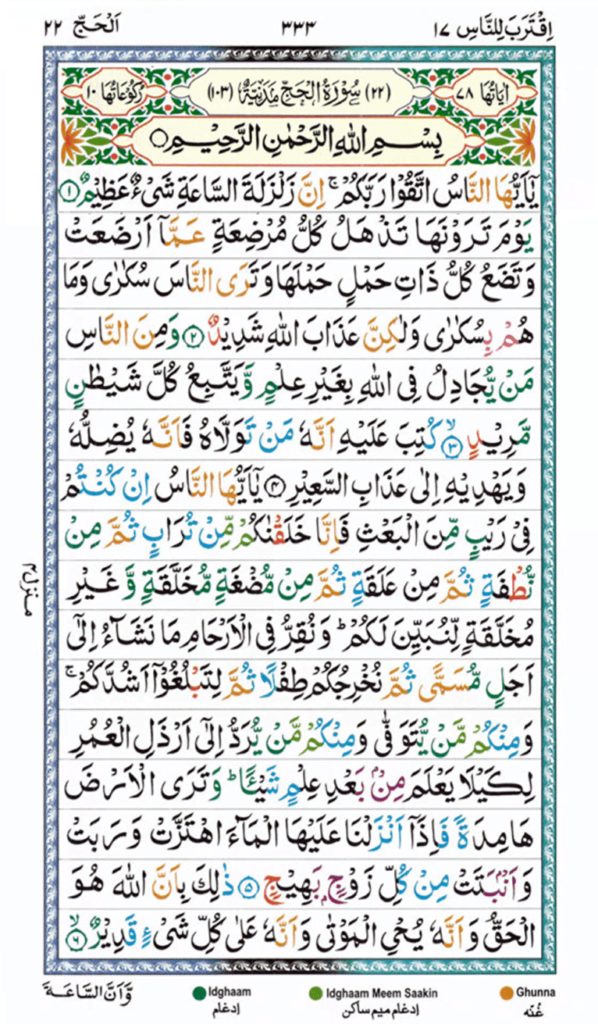 اِقْتَرَبَ لِلنَّاسِ ١٧ ٣٣٣ اَلْحَجّ ٢٢
اٰيَاتُهَا ٧٨ (٢٢) سُوْرَةُ الْحَجِّ مَدَنِيَّةٌ (١٠٣) رُكُوْعَاتُهَا ١٠
بِسْمِ اللهِ الرَّحْمٰنِ الرَّحِيْمِ ۝
يٰۤاَيُّهَا النَّاسُ اتَّقُوْا رَبَّكُمْ ۚ اِنَّ زَلْزَلَةَ السَّاعَةِ شَىْءٌ عَظِيْمٌ ۝١
يَوْمَ تَرَوْنَهَا تَذْهَلُ كُلُّ مُرْضِعَةٍ عَمَّاۤ اَرْضَعَتْ
وَتَضَعُ كُلُّ ذَاتِ حَمْلٍ حَمْلَهَا وَتَرَى النَّاسَ سُكٰرٰى وَمَا
هُمْ بِسُكٰرٰى وَلٰكِنَّ عَذَابَ اللهِ شَدِيْدٌ ۝٢ وَمِنَ النَّاسِ
مَنْ يُّجَادِلُ فِى اللهِ بِغَيْرِ عِلْمٍ وَّيَتَّبِعُ كُلَّ شَيْطٰنٍ
مَّرِيْدٍ ۝٣ كُتِبَ عَلَيْهِ اَنَّهٗ مَنْ تَوَلَّاهُ فَاَنَّهٗ يُضِلُّهٗ
وَيَهْدِيْهِ اِلٰى عَذَابِ السَّعِيْرِ ۝٤ يٰۤاَيُّهَا النَّاسُ اِنْ كُنْتُمْ
فِىْ رَيْبٍ مِّنَ الْبَعْثِ فَاِنَّا خَلَقْنٰكُمْ مِّنْ تُرَابٍ ثُمَّ مِنْ
نُّطْفَةٍ ثُمَّ مِنْ عَلَقَةٍ ثُمَّ مِنْ مُّضْغَةٍ مُّخَلَّقَةٍ وَّغَيْرِ
مُخَلَّقَةٍ لِّنُبَيِّنَ لَكُمْ ؕ وَنُقِرُّ فِى الْاَرْحَامِ مَا نَشَآءُ اِلٰٓى
اَجَلٍ مُّسَمًّى ثُمَّ نُخْرِجُكُمْ طِفْلًا ثُمَّ لِتَبْلُغُوْۤا اَشُدَّكُمْ ۚ
وَمِنْكُمْ مَّنْ يُّتَوَفّٰى وَمِنْكُمْ مَّنْ يُّرَدُّ اِلٰٓى اَرْذَلِ الْعُمُرِ
لِكَيْلَا يَعْلَمَ مِنْۢ بَعْدِ عِلْمٍ شَيْـًٔا ؕ وَتَرَى الْاَرْضَ
هَامِدَةً فَاِذَاۤ اَنْزَلْنَا عَلَيْهَا الْمَآءَ اهْتَزَّتْ وَرَبَتْ
وَاَنْۢبَتَتْ مِنْ كُلِّ زَوْجٍۢ بَهِيْجٍ ۝٥ ذٰلِكَ بِاَنَّ اللهَ هُوَ
الْحَقُّ وَاَنَّهٗ يُحْىِ الْمَوْتٰى وَاَنَّهٗ عَلٰى كُلِّ شَىْءٍ قَدِيْرٌ ۝٦
منزل ٤
وَّاَنَّ السَّاعَةَ
Idghaam Idghaam Meem Saakin Ghunna
اِدغام اِدغام میم ساکن غُنّه